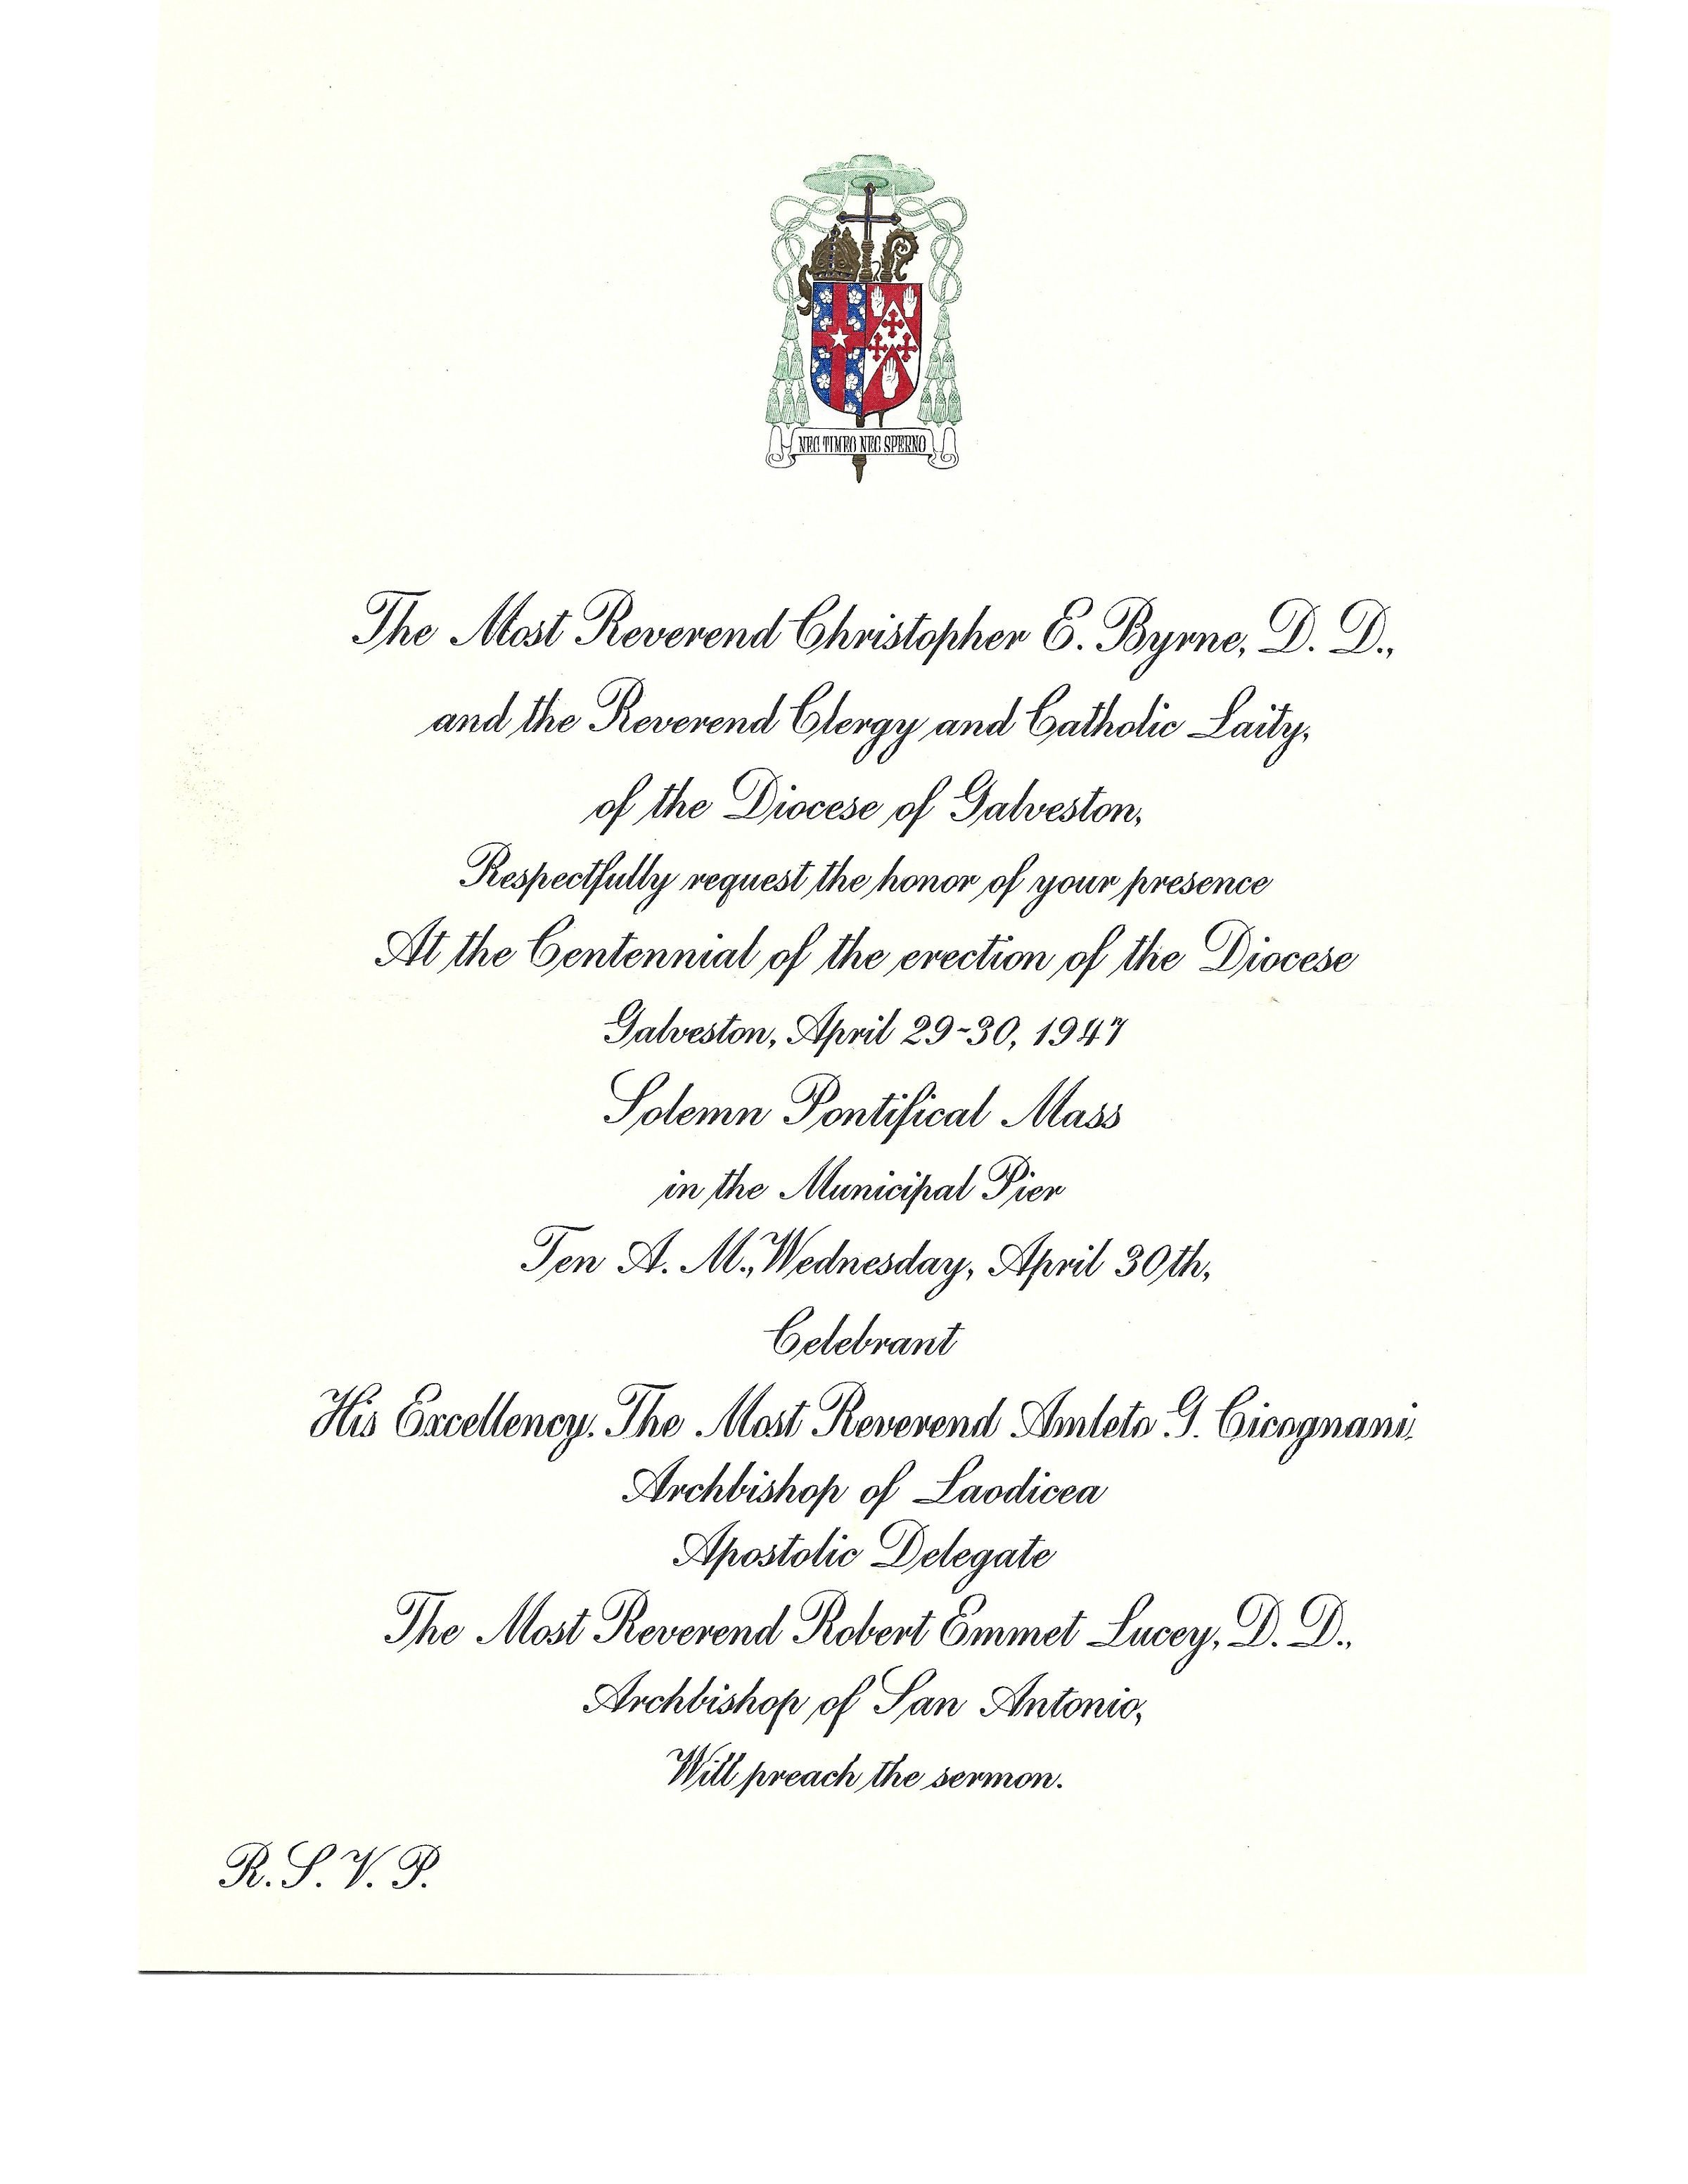 NEC TIMEO NEC SPERNO
The Most Reverend Christopher E. Byrne, D. D.,
and the Reverend Clergy and Catholic Laity,
of the Diocese of Galveston,
Respectfully request the honor of your presence
At the Centennial of the erection of the Diocese
Galveston, April 29-30, 1947
Solemn Pontifical Mass
in the Municipal Pier
Ten A. M., Wednesday, April 30th,
Celebrant
His Excellency, The Most Reverend Amleto G. Cicognani,
Archbishop of Laodicea
Apostolic Delegate
The Most Reverend Robert Emmet Lucey, D. D.,
Archbishop of San Antonio,
Will preach the sermon.
R. S. V. P.